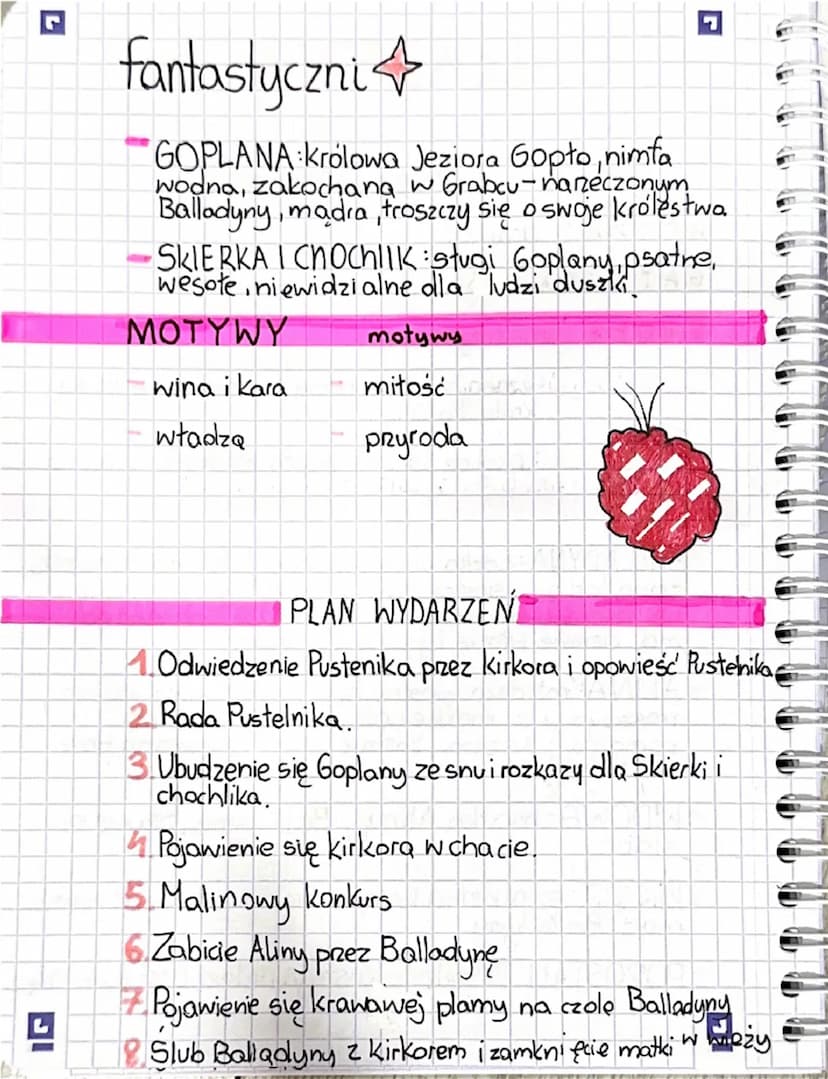 fantastyczni
- GOPLANA: królowa Jeziora Gopło, nimfa
wodna, zakochana w Grabcu - narzeczonym
Balladyny, mądra, troszczy się o swoje królestwo
- SKIERKA I CHOCHLIK: sługi Goplany, psotne,
wesołe, niewidzialne dla ludzi duszki.
MOTYWY motywy
- wina i kara - miłość
- władza - przyroda
PLAN WYDARZEŃ
1. Odwiedzenie Pustenika przez kirkora i opowieść Pustelnika
2. Rada Pustelnika.
3. Ubudzenie się Goplany ze snu i rozkazy dla Skierki i
chochlika.
4. Pojawienie się kirkora w chacie.
5. Malinowy konkurs
6. Zabicie Aliny przez Balladynę
7. Pojawienie się krawawej plamy na czole Balladyny
8. Ślub Balladyny z Kirkorem i zamknięcie matki w wieży